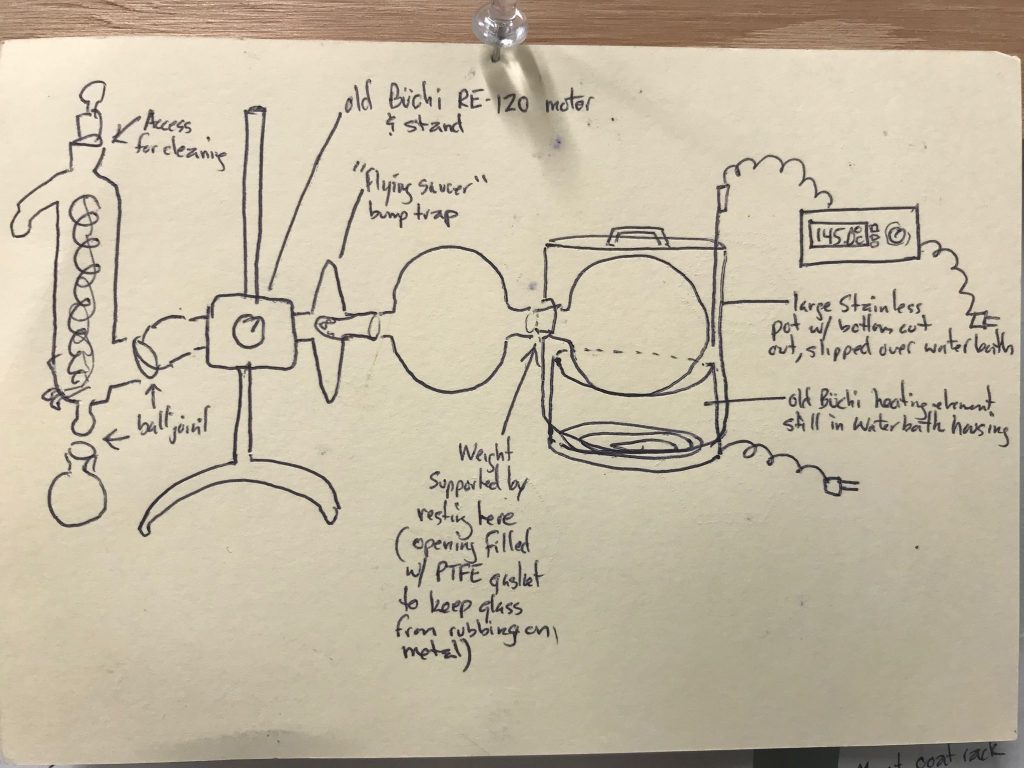 old Büchi RE-120 motor
& stand
Access
for cleaning
"Flying saucer"
bump trap
145.0°C
large Stainless
pot w/ bottom cut
out, slipped over water bath
old Büchi heating element
still in water bath housing
ball joint
Weight
Supported by
resting here
(opening filled
w/ PTFE gasket
to keep glass
from rubbing on
metal)
coat rack